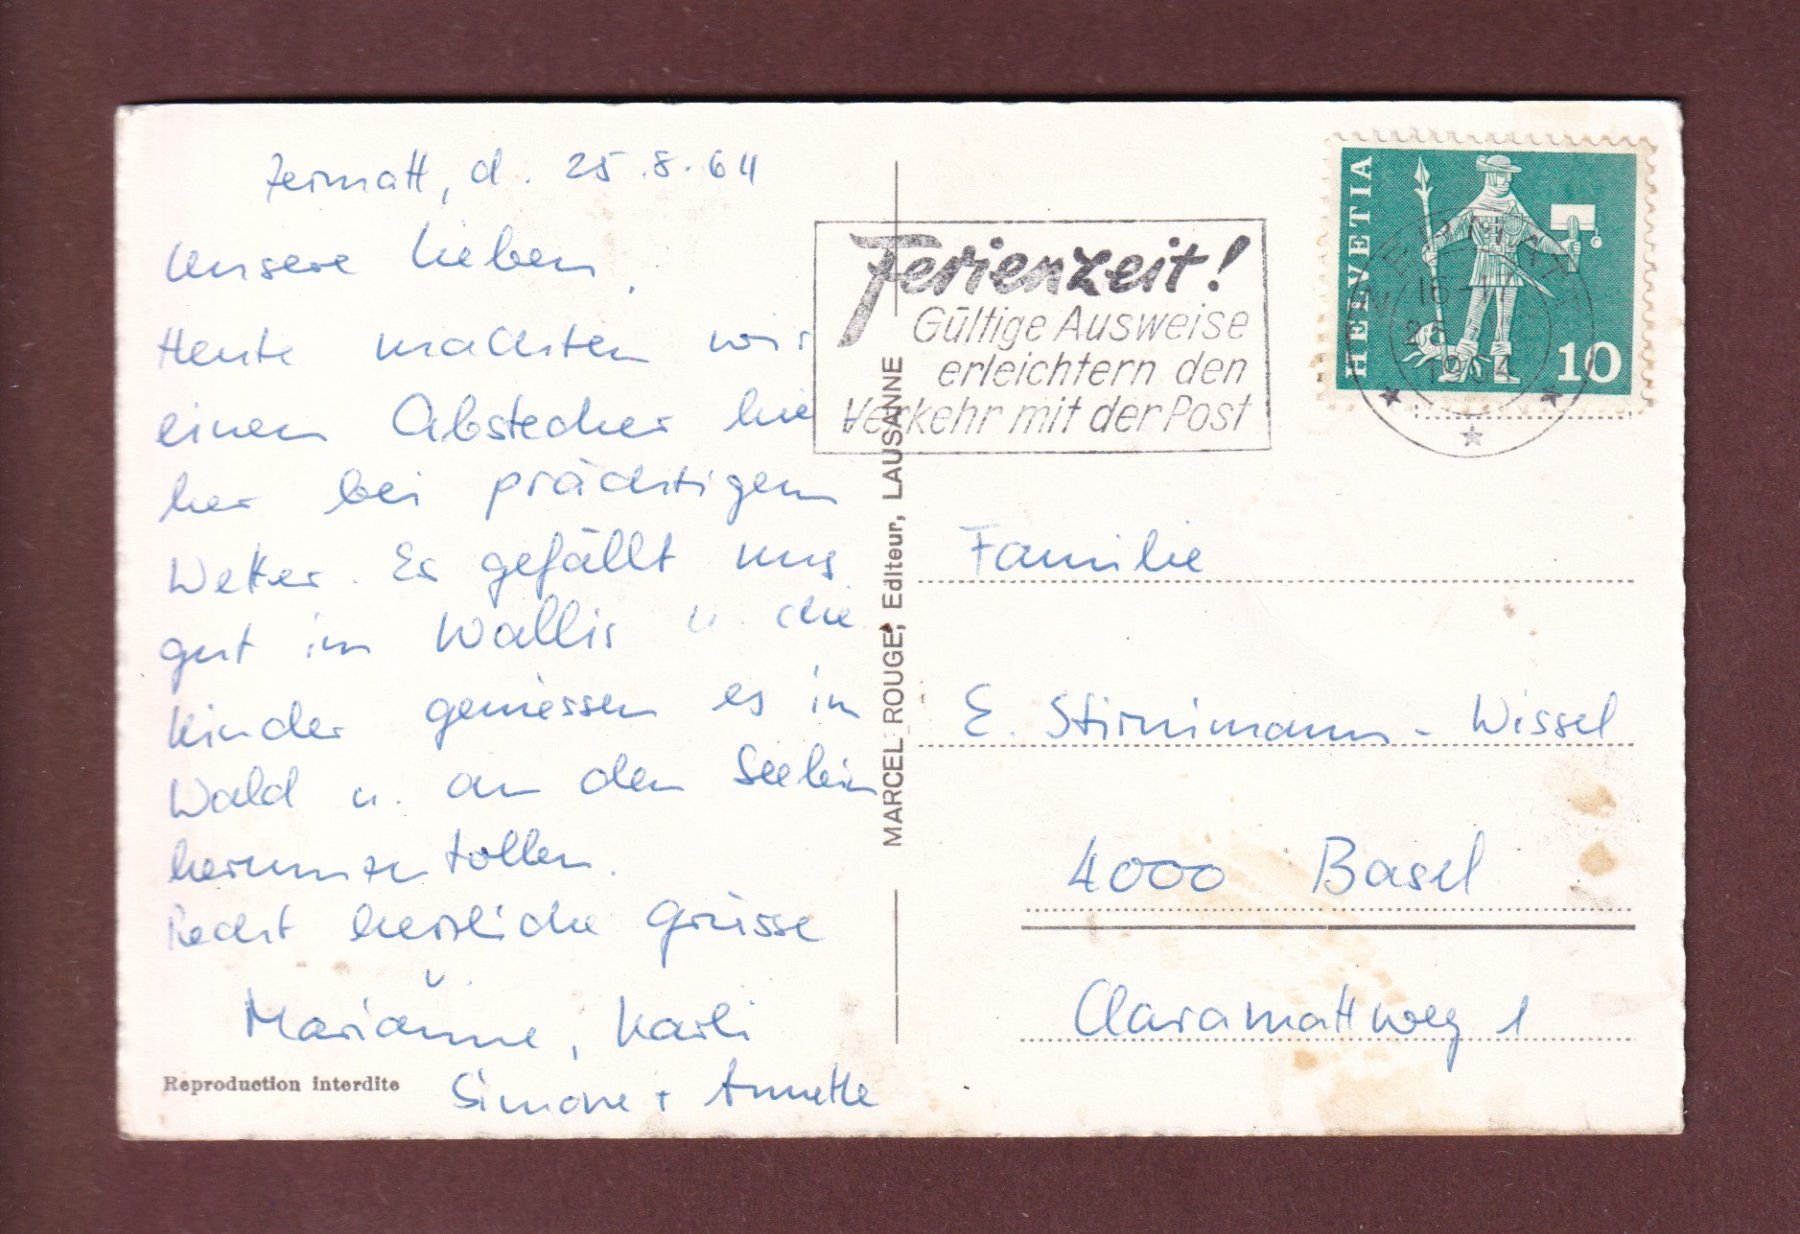 Zermatt, d. 25.8.64
Unsere Lieben,
Heute machten wir
einen Abstecher hie
her bei prächtigem
Wetter. Es gefällt uns
gut im Wallis u. die
Kinder geniessen es im
Wald u. an den Seelein
herumzutollen.
Recht herzliche Grüsse
Marianne, Karli
Simone + Annette
Reproduction interdite
MARCEL ROUGE, Editeur, LAUSANNE
Ferienzeit!
Gültige Ausweise
erleichtern den
Verkehr mit der Post
HELVETIA
10
ZERMATT
1964
Familie
E. Stirnimann-Wissel
4000 Basel
Claramattweg 1